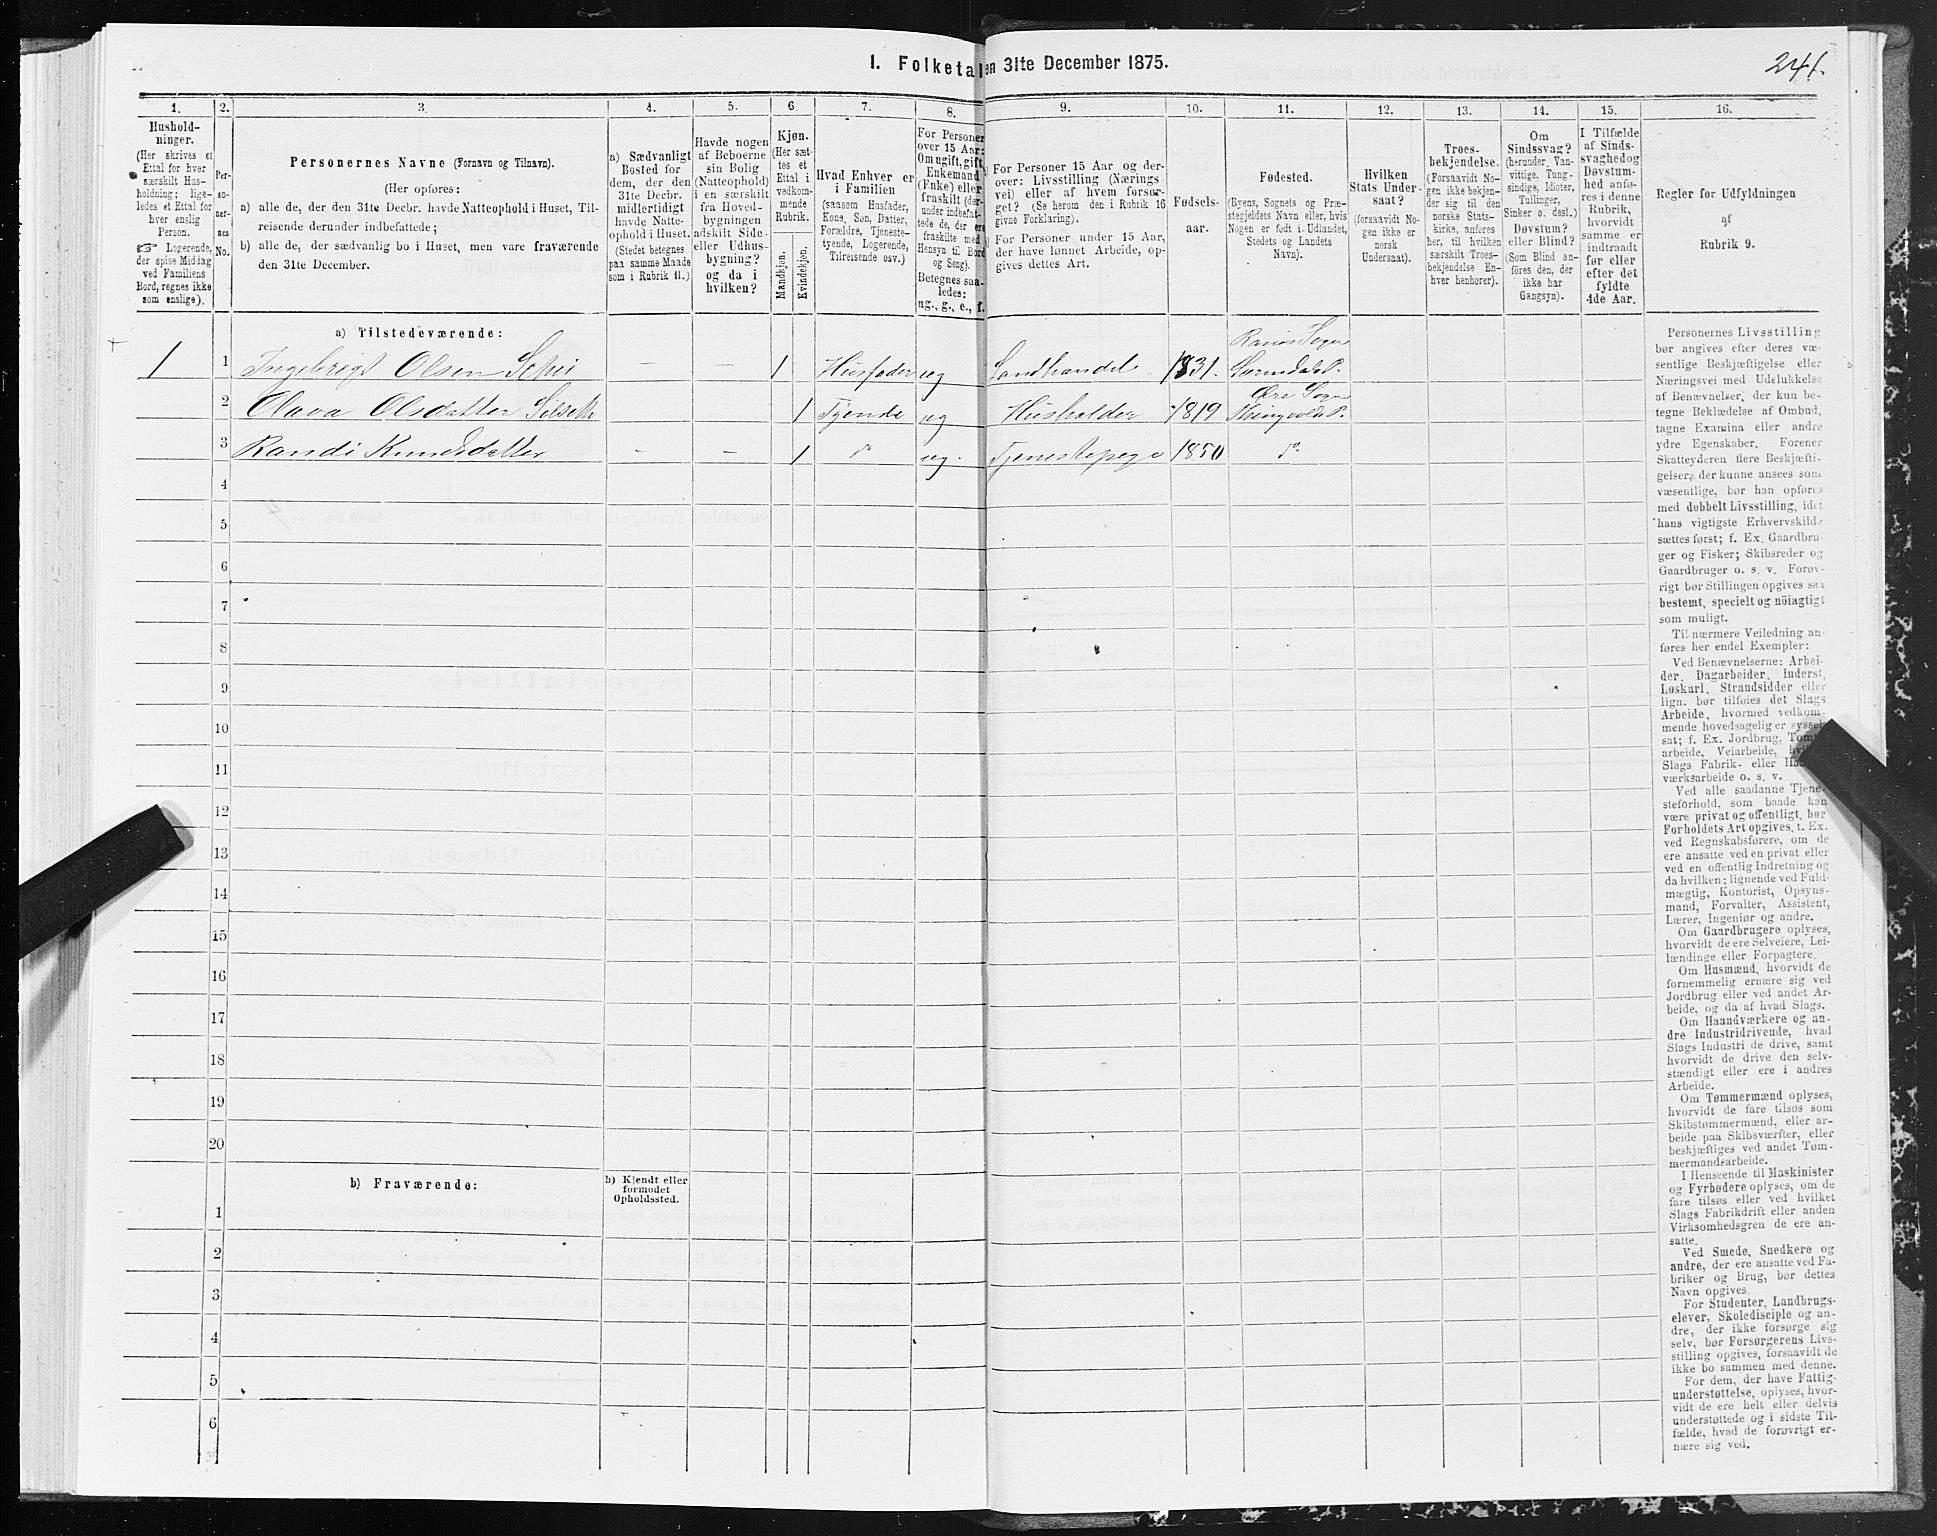 1. Folketal
en 31te December 1875.
241.
1.
2.
3.
4.
5.
6.
7.
8.
9.
10.
11.
12.
13.
14.
15.
16.
Hushold-
ninger.
(Her skrives et
Ettal for hver
særskilt Hus-
holdning; lige-
ledes et Ettal for
hver enslig
Person.
☞ Logerende,
der spise Middag
ved Familiens
Bord, regnes ikke
som enslige).
Per-
so-
ner-
nes
No.
Personernes Navne (Fornavn og Tilnavn).
(Her opføres:
a) alle de, der den 31te Decbr. havde Natteophold i Huset, Til-
reisende derunder indbefattede;
b) alle de, der sædvanlig bo i Huset, men vare fraværende
den 31te December.
a) Sædvanligt
Bosted for
dem, der den
31te Decbr.
midlertidigt
havde Natte-
ophold i Huset.
(Stedet betegnes
paa samme Maade
som i Rubrik 11.)
Havde nogen
af Beboerne
sin Bolig
(Natteophold)
i en særskilt
fra Hoved-
bygningen
adskilt Side-
eller Udhus-
bygning?
og da i
hvilken?
Kjøn.
(Her sæt-
tes et
Ettal i
vedkom-
mende
Rubrik.
Mandkjøn.
Kvindekjøn.
Hvad Enhver er
i Familien
(saasom Husfader,
Kone, Søn, Datter,
Forældre, Tjeneste-
tyende, Logerende,
Tilreisende osv.)
For Personer
over 15 Aar:
Om ugift, gift,
Enkemand
(Enke) eller
fraskilt (der-
under indbefat-
tede de, der ere
fraskilte med
Hensyn til Bord
og Seng).
Betegnes saa-
ledes:
ug., g., e., f.
For Personer 15 Aar og der-
over: Livsstilling (Nærings
vei) eller af hvem forsør-
get? (Se herom den i Rubrik 16
givne Forklaring).
For Personer under 15 Aar,
der have lønnet Arbeide, op-
gives dettes Art.
Fødsels-
aar.
Fødested.
(Byens, Sognets og Præ-
stegjeldets Navn eller, hvis
Nogen er født i Udlandet,
Stedets og Landets
Navn).
Hvilken
Stats Under-
saat?
(forsaavidt No-
gen ikke er
norsk
Undersaat).
Troes-
bekjendelse.
(Forsaavidt No-
gen ikke bekjen-
der sig til den
norske Stats-
kirke, anføres
her, til hvilken
særskilt Troes-
bekjendelse En-
hver henhører).
Om
Sindssvag?
(herunder Van-
vittige, Tung-
sindige, Idioter,
Tullinger,
Sinker o. desl.)
Døvstum?
eller Blind?
(Som Blind an-
føres den, der
ikke har
Gangsyn).
I Tilfælde
af Sinds-
svaghed og
Døvstum-
hed anfø-
res i denne
Rubrik,
hvorvidt
samme er
indtraadt
før eller
efter det
fyldte
4de Aar.
Regler for Udfyldningen
af
Rubrik 9.
a) Tilstedeværende:
1 1 Ingebrigt Olsen — — 1 Husfader ug Landhandel 1831. Ranes Sogn Surendals P.
2 Olava Olsdatter Silseth 1 Tyende ug Husholder 1819 Øre Sogn Thingvolds P.
3 Randi Knudsdatter — — 1 do ug. Tjenestepige 1850 do
4
5
6
7
8
9
10
11
12
13
14
15
16
17
18
19
20
b) Fraværende:
b) Kjendt eller
formodet
Opholdssted.
1
2
3
4
5
6
Personernes Livsstilling
bør angives efter deres væ-
sentlige Beskjæftigelse eller
Næringsvei med Udelukkelse
af Benævnelser, der kun be-
tegne Beklædelse af Ombud,
tagne Examina eller andre
ydre Egenskaber. Forener
Skatteyderen flere Beskjæfti-
gelser, der kunne ansees som
væsentlige, bør han opføres
med dobbelt Livsstilling, idet
hans vigtigste Erhvervskilde
sættes først; f. Ex. Gaardbru-
ger og Fisker; Skibsreder og
Gaardbruger o. s. v. Forøv-
rigt bør Stillingen opgives saa
bestemt, specielt og nöiagtigt
som muligt.
Til nærmere Veiledning an-
føres her endel Exempler:
Ved Benævnelserne: Arbei-
der, Dagarbeider, Inderst,
Løskarl, Strandsidder eller
lign. bør tilføies det Slags
Arbeide, hvormed vedkom-
mende hovedsagelig er syssel-
sat; f. Ex. Jordbrug, Tom
arbeide, Veiarbeide,
Slags Fabrik- eller
værksarbeide o. s. v.
Ved alle saadanne Tjene-
steforhold, som baade kan
være privat og offentligt, bør
Forholdets Art opgives, t. Ex.
ved Regnskabsførere, om de
ere ansatte ved en privat eller
ved en offentlig Indretning og
da hvilken; lignende ved Fuld-
mægtig, Kontorist, Opsyns-
mand, Forvalter, Assistent,
Lærer, Ingeniør og andre.
Om Gaardbrugere oplyses,
hvorvidt de ere Selveiere, Lei-
lændinge eller Forpagtere.
Om Husmænd, hvorvidt de
fornemmelig ernære sig ved
Jordbrug eller ved andet Ar-
beide, og da af hvad Slags.
Om Haandværkere og an-
dre Industridrivende, hvad
Slags Industri de drive, samt
hvorvidt de drive den selv-
stændigt eller ere i andres
Arbeide.
Om Tømmermænd oplyses,
hvorvidt de fare tilsøs som
Skibstømmermænd, eller ar-
beide paa Skibsværfter, eller
beskjæftiges ved andet Tøm-
mermandsarbeide.
I Henseende til Maskinister
og Fyrbødere oplyses, om de
fare tilsøs eller ved hvilket
Slags Fabrikdrift eller anden
Virksomhedsgren de ere an-
satte.
Ved Smede, Snedkere og
andre, der ere ansatte ved Fa-
briker og Brug, bør dettes
Navn opgives.
For Studenter, Landbrugs-
elever, Skoledisciple og an-
dre, der ikke forsørge sig
selv, bør Forsørgerens Livs-
stilling opgives, forsaavidt de
ikke bo sammen med denne.
For dem, der have Fattig-
understøttelse, oplyses, hvor-
vidt de ere helt eller delvis
understøttede og i sidste Til-
fælde, hvad de forøvrigt er-
nære sig ved.